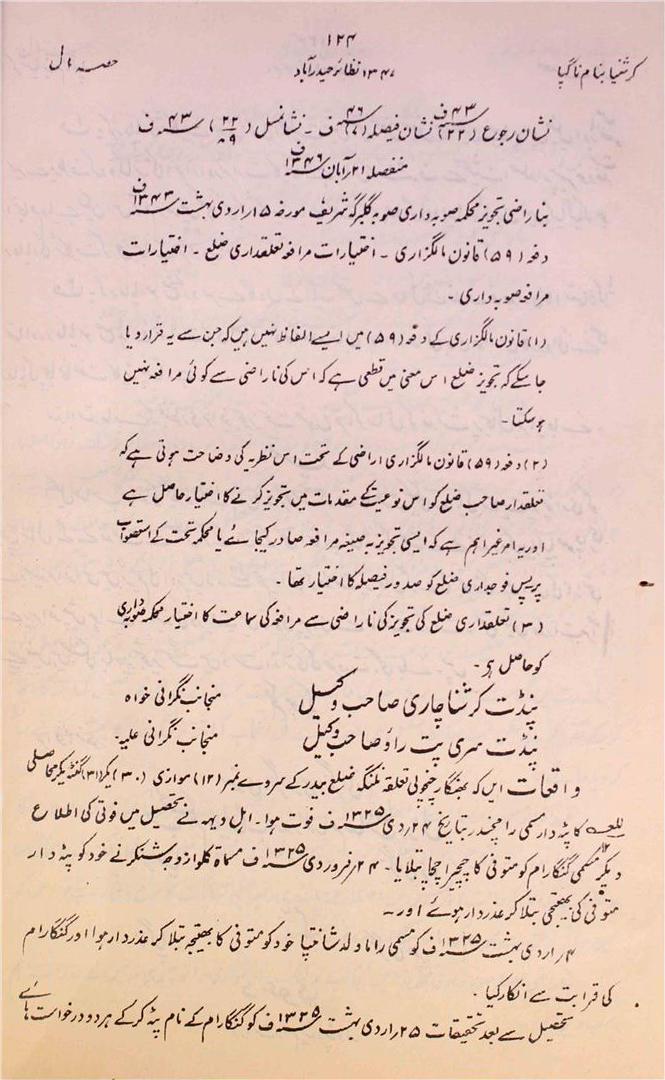 ۱۲۴
کرشنیا بنام ناگپا
۱۳۴۷ نظائر حیدرآباد
حصہ مال
نشان رجوع (۲۲) ۴۳ ف نشان فیصلہ (۷) ۴۶ ف ۔ نشان مثل (۲۲/۸۹) ۴۳ ف
منفصلہ ۲۱ آبان ۱۳۴۶ ف
بنا راضی تجویز محکمہ صوبہ داری صوبہ گلبرگہ شریف مورخہ ۱۵ اردی بہشت ۱۳۴۳ ف
دفعہ (۵۹) قانون مالگزاری ۔ اختیارات مرافعہ تعلقداری ضلع ۔ اختیارات
مرافعہ صوبہ داری ۔
(۱) قانون مالگزاری کے دفعہ (۵۹) میں ایسے الفاظ نہیں ہیں کہ جن سے یہ قرار دیا
جا سکے کہ تجویز ضلع اس معنی میں قطعی ہے کہ اس کی ناراضی سے کوئی مرافعہ نہیں
ہو سکتا ۔
(۲) دفعہ (۵۹) قانون مالگزاری اراضی کے تحت اس نظریہ کی وضاحت ہوتی ہے کہ
تعلقدار صاحب ضلع کو اس نوعیت کے مقدمات میں تجویز کرنے کا اختیار حاصل ہے
اور یہ امر غیر اہم ہے کہ ایسی تجویز بہ صیغہ مرافعہ صادر کیجائے یا محکمہ تحت کے استصواب
پر پس فوجداری ضلع کو صدور فیصلہ کا اختیار تھا ۔
(۳) تعلقداری ضلع کی تجویز کی ناراضی سے مرافعہ کی سماعت کا اختیار محکمہ صوبہ داری
کو حاصل ہے ۔
پنڈت کرشنا چاری صاحب وکیل منجانب نگرانی خواہ
پنڈت سری پت راؤ صاحب وکیل منجانب نگرانی علیہ ۔
واقعات ایں کہ بھنگار چنچولی تعلقہ نلنگہ ضلع بیدر کے سروے نمبر (۱۲) موازی (۳۰) یکر (۳۱) گنٹھ یکر محاصلی
کا پٹہ دار مسمی رامچندر بتاریخ ۲۴ ردی ۱۳۲۵ ف فوت ہوا ۔ اہل دیہہ نے تحصیل میں فوتی کی اطلاع
دیکر مسمی گنگارام کو متوفی کا چچیرا چچا بتلایا ۔ ۲۴ فروردی ۱۳۲۵ ف مسماۃ کلوا زوجہ شنکر نے خود کو پٹہ دار
متوفی کی بھتیجی بتلا کر عذردار ہوئے اور ۔
۴ اردی بہشت ۱۳۲۵ ف کو مسمی رانا ولد شانتپا خود کو متوفی کا بھتیجہ بتلا کر عذردار ہوا اور گنگارام
کی قرابت سے انکار کیا ۔
تحصیل سے بعد تحقیقات ۲۵ اردی بہشت ۱۳۲۵ ف کو گنگارام کے نام پٹہ کرکے ہر دو درخواست ہائے